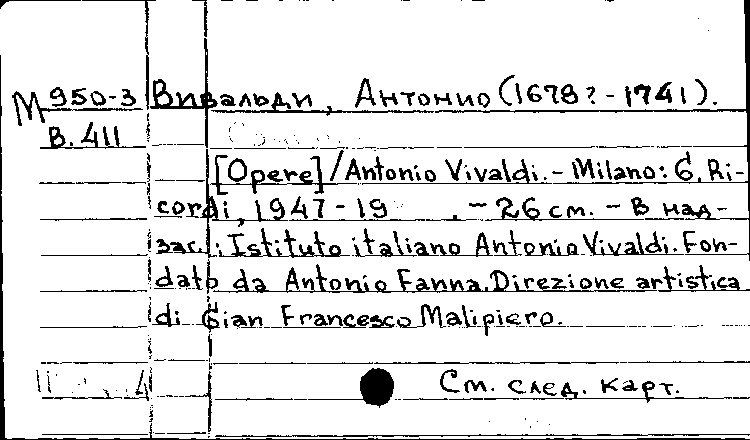 М 950-3 Вивальди, Антонио (1678? - 1741).
В. 411
[Opere] / Antonio Vivaldi. - Milano: G. Ri-
cordi, 1947 - 19 . - 26 cm. - В над-
заг.: Istituto italiano Antonio Vivaldi. Fon-
dato da Antonio Fanna. Direzione artistica
di Gian Francesco Malipiero.
См. след. карт.